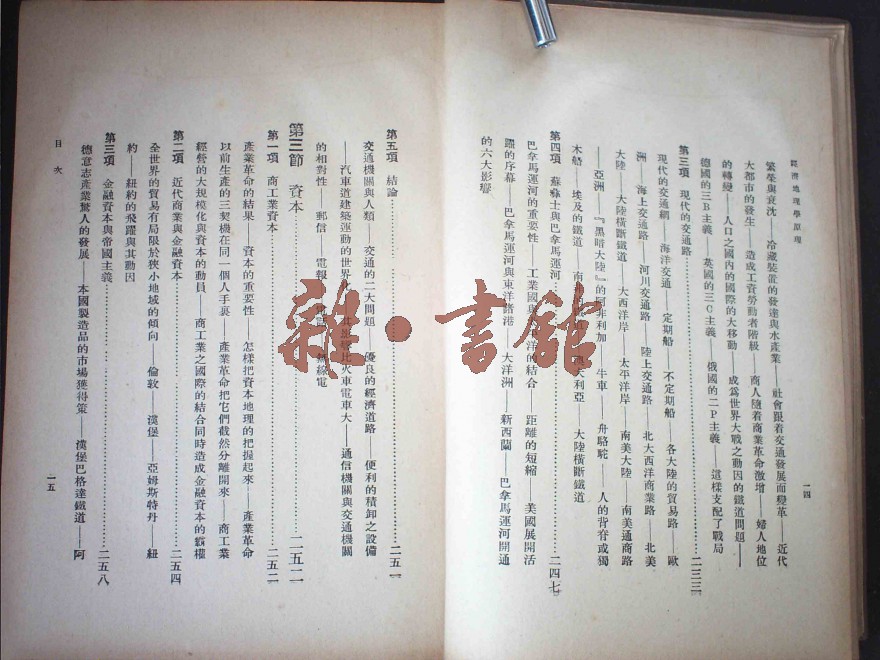 經濟地理學原理
一四
繁榮與衰沈——冷藏裝置的發達與水產業 社會跟着交通發展而變革——近代
大都市的發生——造成工資勞動者階級——商人隨着商業革命激增——婦人地位
的轉變——人口之國內的國際的大移動 成爲世界大戰之動因的鐵道問題——
德國的三B主義——英國的三C主義——俄國的二P主義——這樣支配了戰局
第三項 現代的交通路……二三三
現代的交通網 海洋交通——定期船 不定期船——各大陸的貿易路——歐
洲——海上交通路 河川交通路 陸上交通路 北大西洋商業路——北美
大陸——大陸橫斷鐵道 大西洋岸 太平洋岸 南美大陸——南美通商路
——亞洲——『黑暗大陸』的阿非利加 牛車——舟駱駝——人的背脊或獨
木船——埃及的鐵道——南非的鐵道 澳大利亞 大陸橫斷鐵道
第四項 蘇彝士與巴拿馬運河……二四七
巴拿馬運河的重要性——工業國與 洋的結合——距離的短縮——美國展開活
躍的序幕——巴拿馬運河與東洋諸港——大洋洲——新西蘭——巴拿馬運河開通
的六大影響
第五項 結論……二五一
交通機關與人類——交通的二大問題——優良的經濟道路——便利的積卸之設備
——汽車道建築運動的世界化 其影響比火車電車大——通信機關與交通機關
的相對性——郵信——電報 無線電
第三節 資本……二五二
第一項 商工業資本……二五二
產業革命的結果——資本的重要性 怎樣把資本地理的把握起來——產業革命
以前生產的三契機在同一個人手裏——產業革命把它們截然分離開來——商工業
經營的大規模化與資本的動員——商工業之國際的結合同時造成金融資本的霸權
第二項 近代商業與金融資本……二五四
全世界的貿易有局限於狹小地域的傾向——倫敦——漢堡——亞姆斯特丹——紐
約——紐約的飛躍與其動因
第三項 金融資本與帝國主義……二五八
德意志產業驚人的發展——本國製造品的市場獲得策——漢堡巴格達鐵道——阿
目次
一五
雜·書館